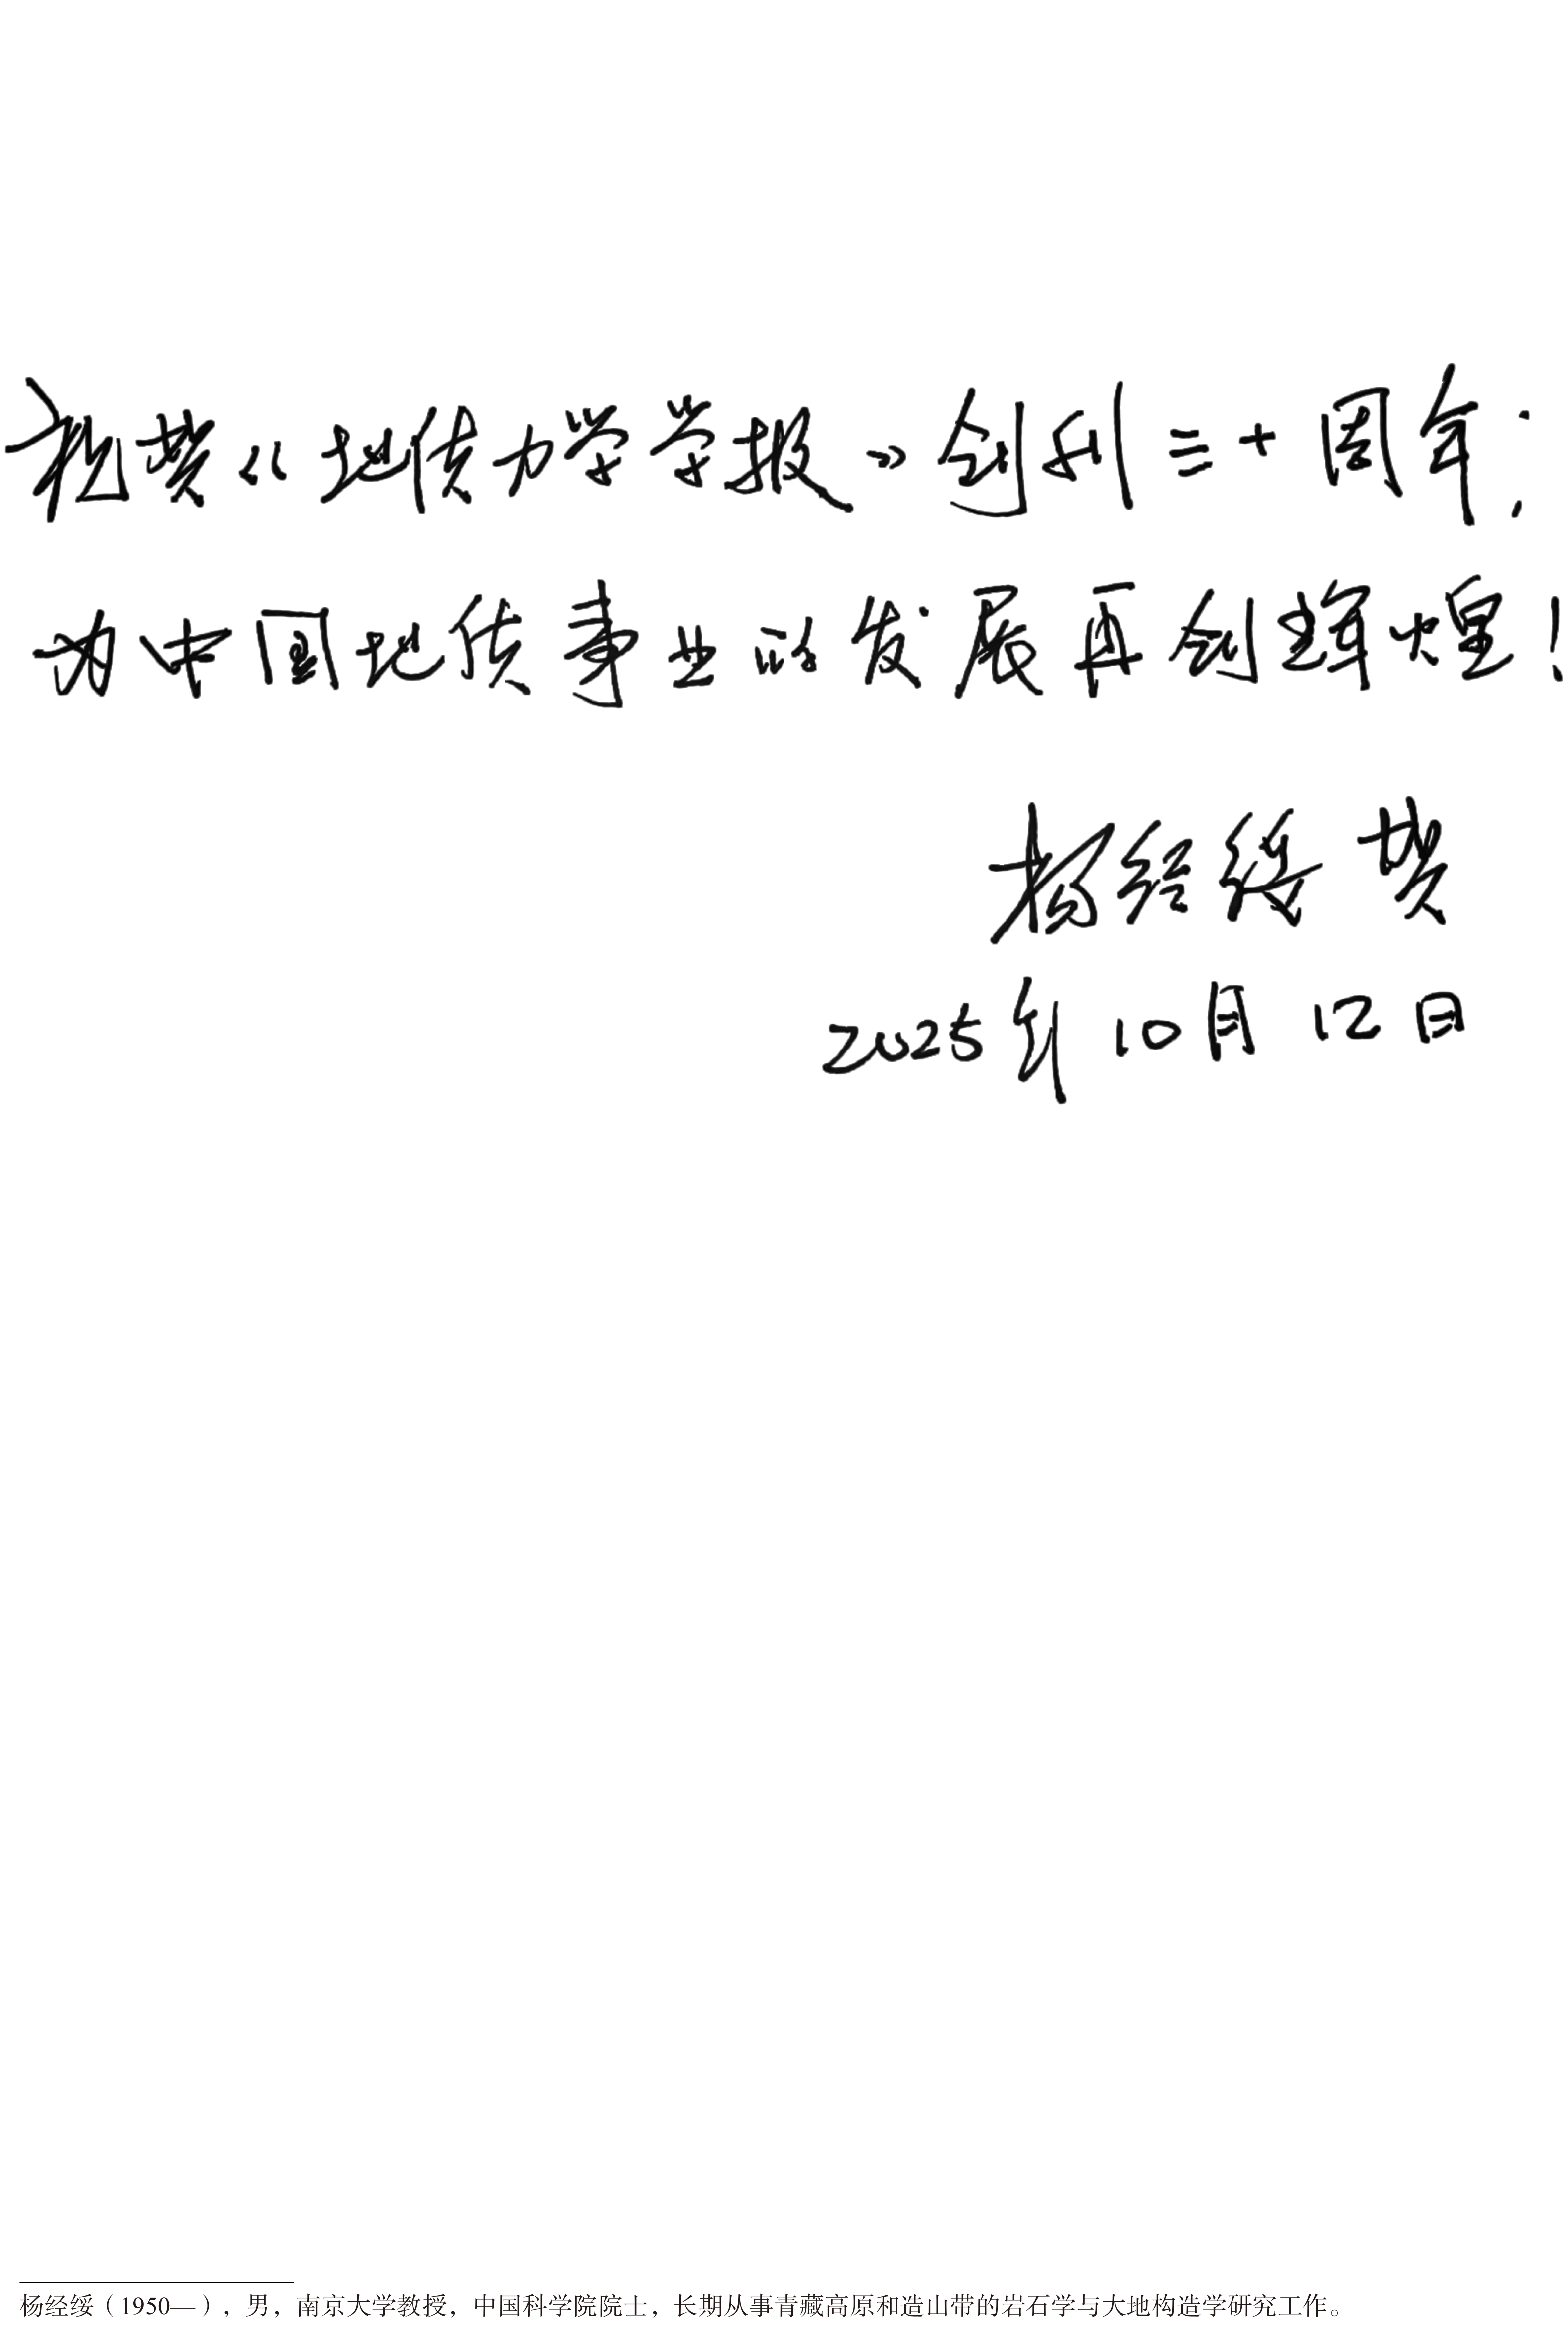 祝贺《地质力学学报》创刊三十周年;
为中国地质事业的发展再创辉煌!
杨经绥 贺
2025年10月12日
杨经绥（1950—），男，南京大学教授，中国科学院院士，长期从事青藏高原和造山带的岩石学与大地构造学研究工作。